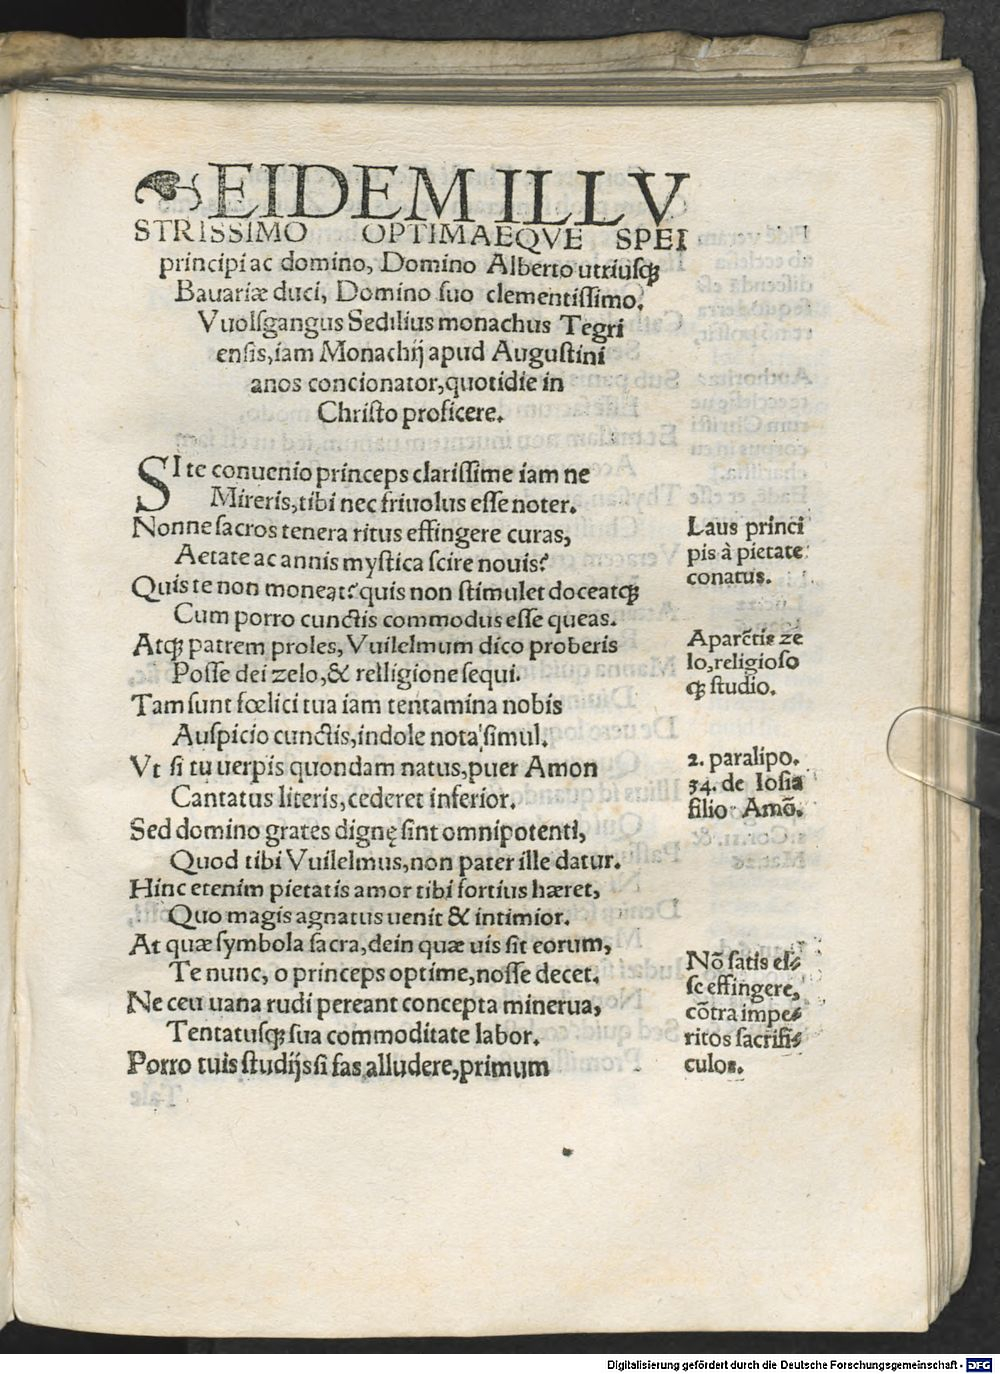 EIDEM ILLV
STRISSIMO OPTIMAEQVE SPEI
principi ac domino, Domino Alberto utriusqꝫ
Bauariæ duci, Domino suo clementissimo,
Vuolfgangus Sedilius monachus Tegri
ensis, iam Monachij apud Augustini
anos concionator, quotidie in
Christo proficere.
SI te conuenio princeps clarissime iam ne
Mireris, tibi nec friuolus esse noter.
Nonne sacros tenera ritus effingere curas,
Aetate ac annis mystica scire nouis?
Quis te non moneat? quis non stimulet doceatqꝫ
Cum porro cunctis commodus esse queas.
Atqꝫ patrem proles, Vuilelmum dico proberis
Posse dei zelo, & relligione sequi.
Tam sunt fœlici tua iam tentamina nobis
Auspicio cunctis, indole nota simul.
Vt si tu uerpis quondam natus, puer Amon
Cantatus literis, cederet inferior.
Sed domino grates dignę sint omnipotenti,
Quod tibi Vuilelmus, non pater ille datur.
Hinc etenim pietatis amor tibi fortius hæret,
Quo magis agnatus uenit & intimior.
At quæ symbola sacra, dein quæ uis sit eorum,
Te nunc, o princeps optime, nosse decet.
Ne ceu uana rudi pereant concepta minerua,
Tentatusqꝫ sua commoditate labor.
Porro tuis studijs si fas alludere, primum
Laus princi
pis à pietate
conatus.
Aparētis ze
lo, religioso
qꝫ studio.
2. paralipo.
34. de Iosia
filio Amō.
Nō satis es-
se effingere,
cōtra impe-
ritos sacrifi-
culos.
Digitalisierung gefördert durch die Deutsche Forschungsgemeinschaft - DFG